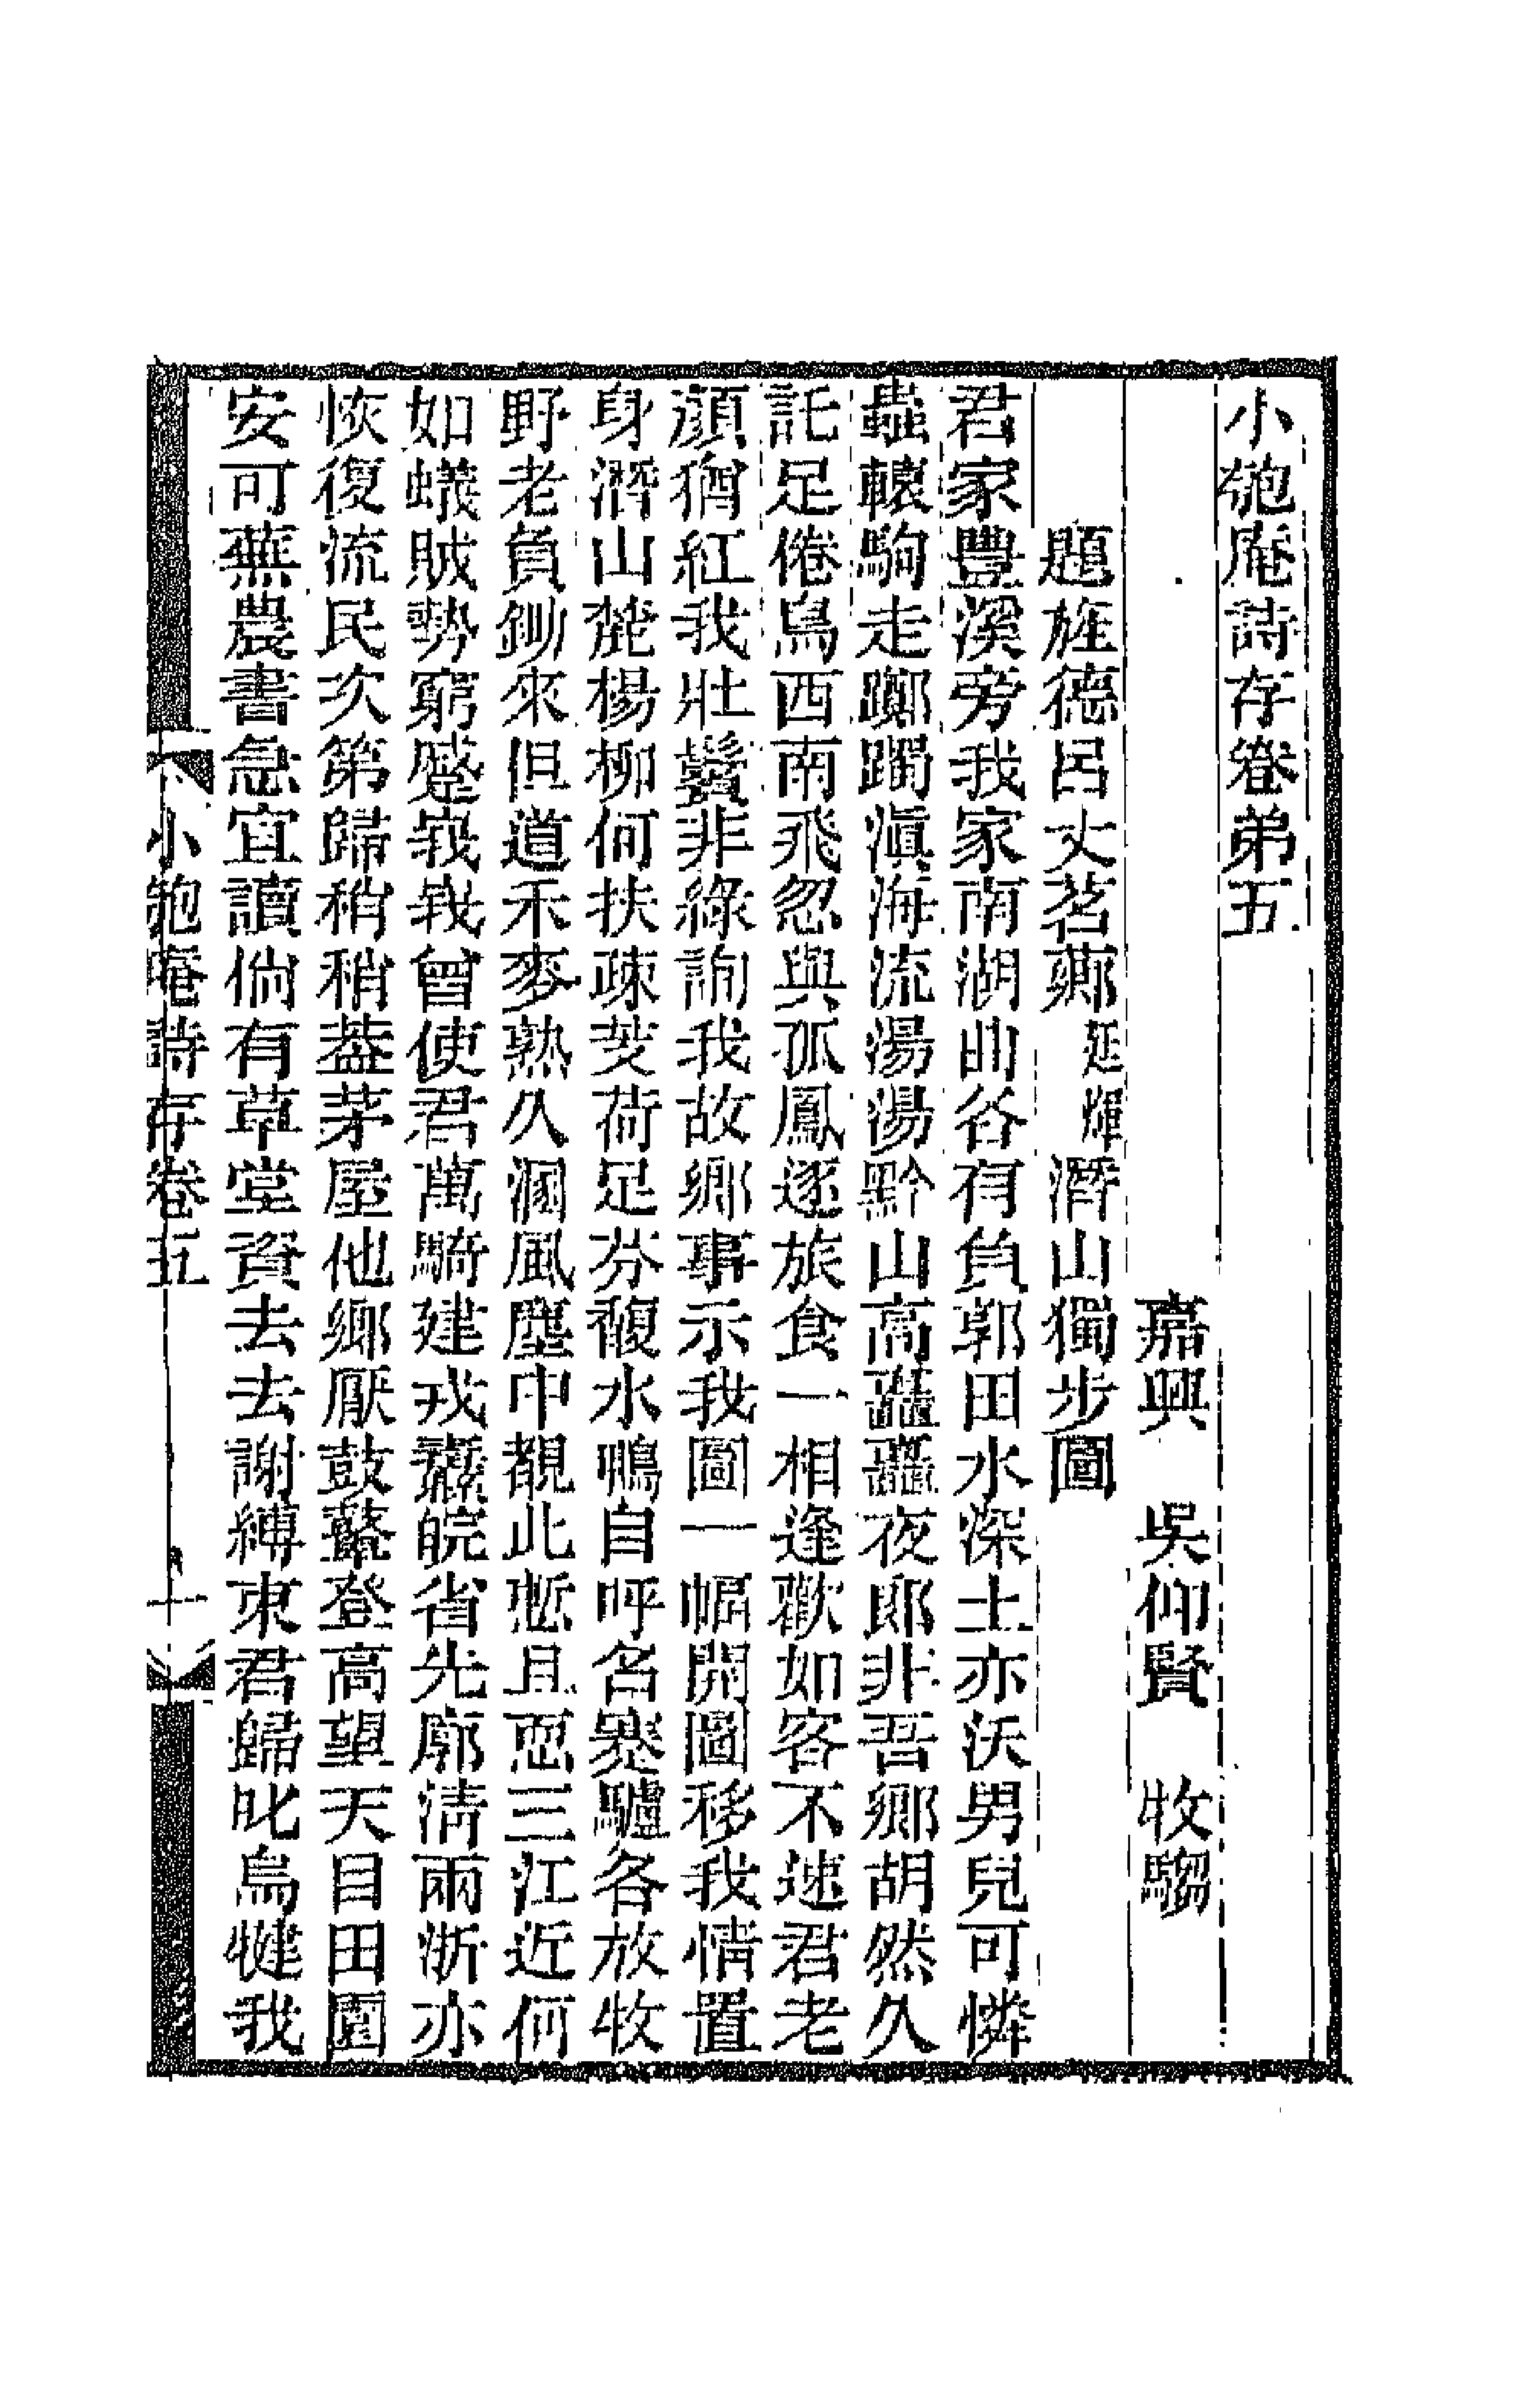 小匏庵詩存卷弟五
嘉興　吳仰賢　牧騶
題旌德呂丈茗薌延煇潛山獨步圖
君家豐溪旁我家南湖曲各有負郭田水深土亦沃男兒可憐
蟲轅駒走躑躅滇海流湯湯黔山高矗矗夜郎非吾鄉胡然久
託足倦鳥西南飛忽與孤鳳逐旅食一相逢歡如客不速君老
顏猶紅我壯鬢非綠詢我故鄉事示我圖一幅開圖移我情置
身潛山麓楊柳何扶疎芰荷足芬馥水鴨自呼名蹇驢各放牧
野老負鋤來但道禾麥熟久溷風塵中覩此慙且恧三江近何
如蟻賊勢窮蹙峩峩曾使君萬騎建戎纛皖省先廓淸兩浙亦
恢復流民次第歸稍稍葢茅屋他鄉厭鼓鼙登高望天目田園
安可蕪農書急宜讀倘有草堂資去去謝縛束君歸叱烏犍我
小匏庵詩存卷五　一